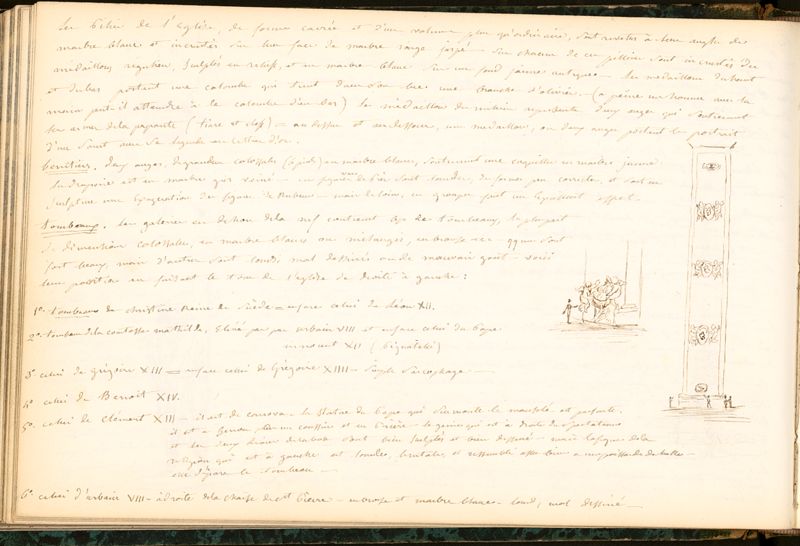 Les Piliers de l'Eglise, de forme carrée et d'un volume plus qu'ordinaire, sont revêtus à leur angle de
marbre blanc et incrustés sur leur face de marbre rouge jaspé - Sur chacun de ces piliers sont incrustés des
médaillons réguliers, sculptés en relief, et en marbre blanc sur un fond jaune antique - Les médaillons du haut
et du bas portent une colombe qui tient dans son bec une branche d'olivier. (à peine un homme avec la
main peut il atteindre à la colombe d'en bas) Le médaillon du milieu représente deux anges qui soutiennent
les armes de la papauté (tiare et clefs) - au dessus et au dessous, un médaillon, où deux anges portent le portrait
d'un Saint avec sa légende en lettres d'or.
Benitiers. deux anges, de grandeur colossale (6 pieds) en marbre blanc, soutiennent une coquille en marbre jaune.
La draperie est en marbre gris veiné - ces figures de près sont lourdes, de formes peu correctes, et sont en
sculpture une exagération des figures de Rubens - mais de loin, ce groupe fait un excellent effet.
Tombeaux. Les galeries en dehors de la nef contiennent de tombeaux, la plupart
de dimensions colossales, en marbre blanc ou mélangés, en bronze - quelques uns sont
fort beaux, mais d'autres sont lourds, mal dessinés ou de mauvais goût - voici
leur position en faisant le tour de l'église de droite à gauche :
1° tombeau de christine Reine de Suède - en face celui de Léon XII.
2° tombeau de la comtesse mathilde, élevé par urbain VIII et en face celui du Pape
innocent XII (Pignatelli)
3° celui de grégoire XIII - en face celui de Grégoire XIIII - Simple Sarcophage -
4° celui de Benoit XIV.
5° celui de Clément XIII - il est de canova - la statue du Pape qui surmonte le mausolée est parfaite.
il est à genoux sur un coussin et en prière - le génie qui est à droite du spectateur
et les deux lions de la base sont bien sculptés et bien dessinés - mais la figure de la
religion qui est à gauche est lourde, brutale, et ressemble assez bien à une poissarde de halle -
elle dépare le tombeau -
6° celui d'urbain VIII - à droite de la chaise de St Pierre - en bronze et marbre blanc - lourd, mal dessiné -